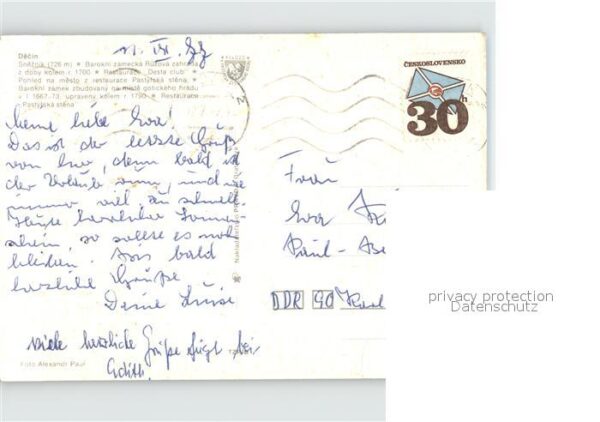 11. IX. 77
Děčín
Sněžník (726 m) ★ Barokní zámecká Růžová zahrada
z doby kolem r. 1700 ★ Restaurace „Desta club“
Pohled na město z restaurace Pastýřská stěna
Barokní zámek zbudovaný na místě gotického hradu
v r. 1667-73, upravený kolem r. 1790 ★ Restaurace
Pastýřská stěna
ČESKOSLOVENSKO
30h
Meine liebe Eva!
Das ist der letzte Gruß
von hier, denn bald ist
der Urlaub um, und wie
immer viel zu schnell.
Heute herrlicher Sonnen-
schein, so sollte es noch
bleiben. Bis bald
herzliche Grüße
Deine Luise
viele herzliche Grüße fügt bei
Edith
Foto Alexandr Paul
Frau
Eva
Paul-
DDR 90
privacy protection
Datenschutz